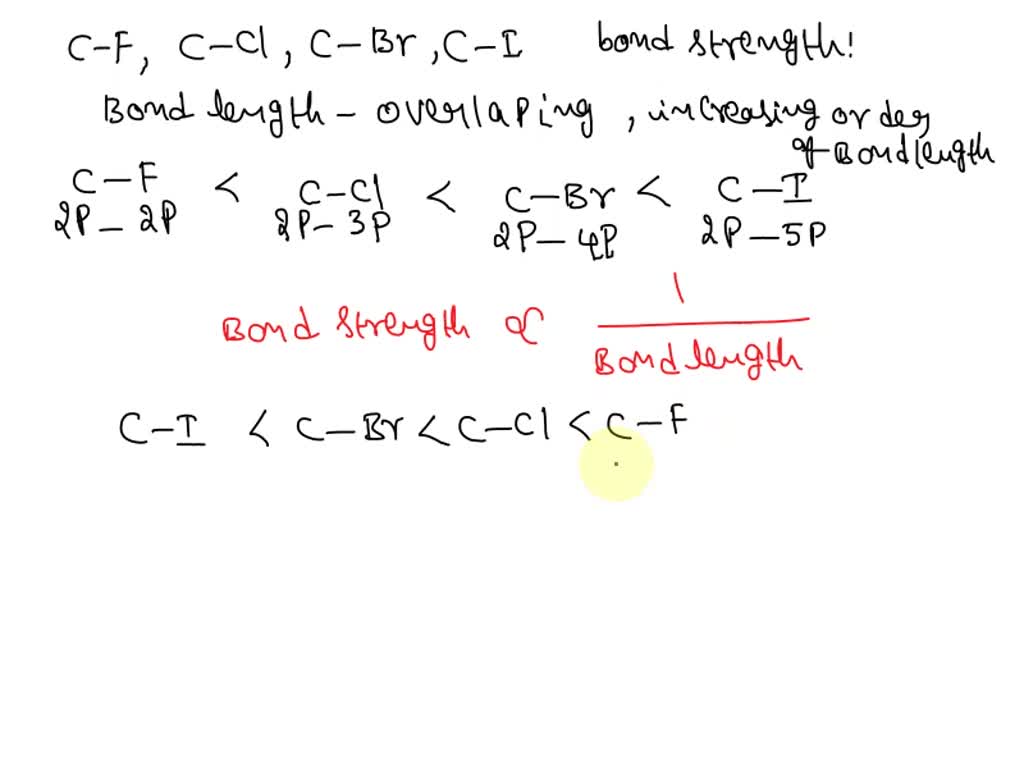 C-F, C-Cl, C-Br, C-I bond strength!
Bond length - overlaping, increasing order
of Bond length
C-F < C-Cl < C-Br < C-I
2P-2P 2P-3P 2P-4P 2P-5P
Bond strength ∝ 1
Bond length
C-I < C-Br < C-Cl < C-F